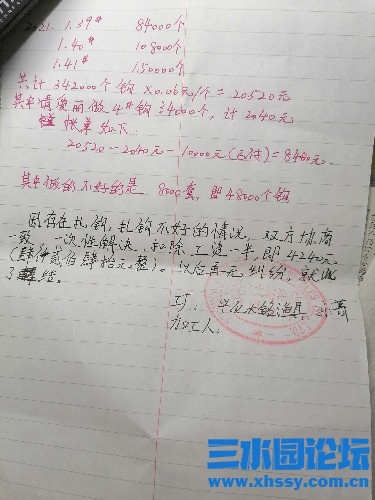 2021. 1.39# 84000个
1.40# 108000个
1.41# 150000个
共计 342000个钩 x0.06元/个 = 20520元
其中情度丽做4#钩34000个, 计2040元
账单如下:
20520 - 2040元 - 10000元(已付) = 8480元.
其中做的不好的是 8000套, 即48000个钩
因存在扎钩, 扎钩不好的情况, 双方协商
一致, 一次性解决, 扣除工资一半, 即4240元
(肆仟贰佰肆拾元整). 以后再无纠纷, 就此
了结.
兴化大铭渔具
加工人:
三水园论坛
www.xhssy.com.cn